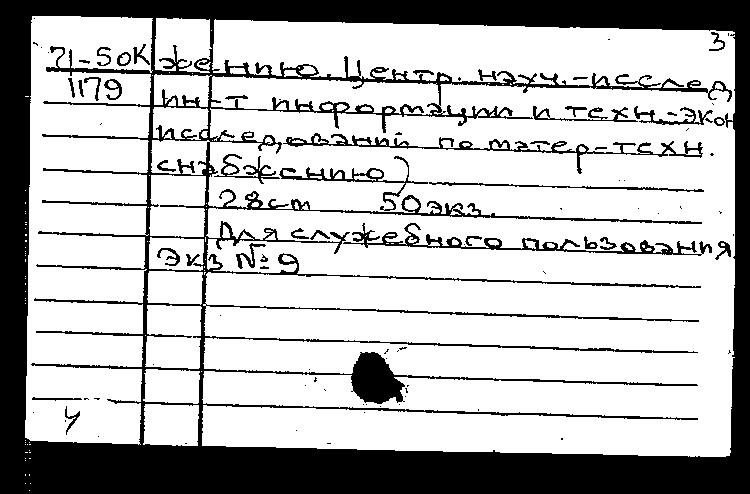 3
71-50К жению. Центр. науч.-исслед.
1179 ин-т информации и техн.-экон
исследований по матер-техн.
снабжению)
28cm 50 экз.
Для служебного пользования
Экз №9
У